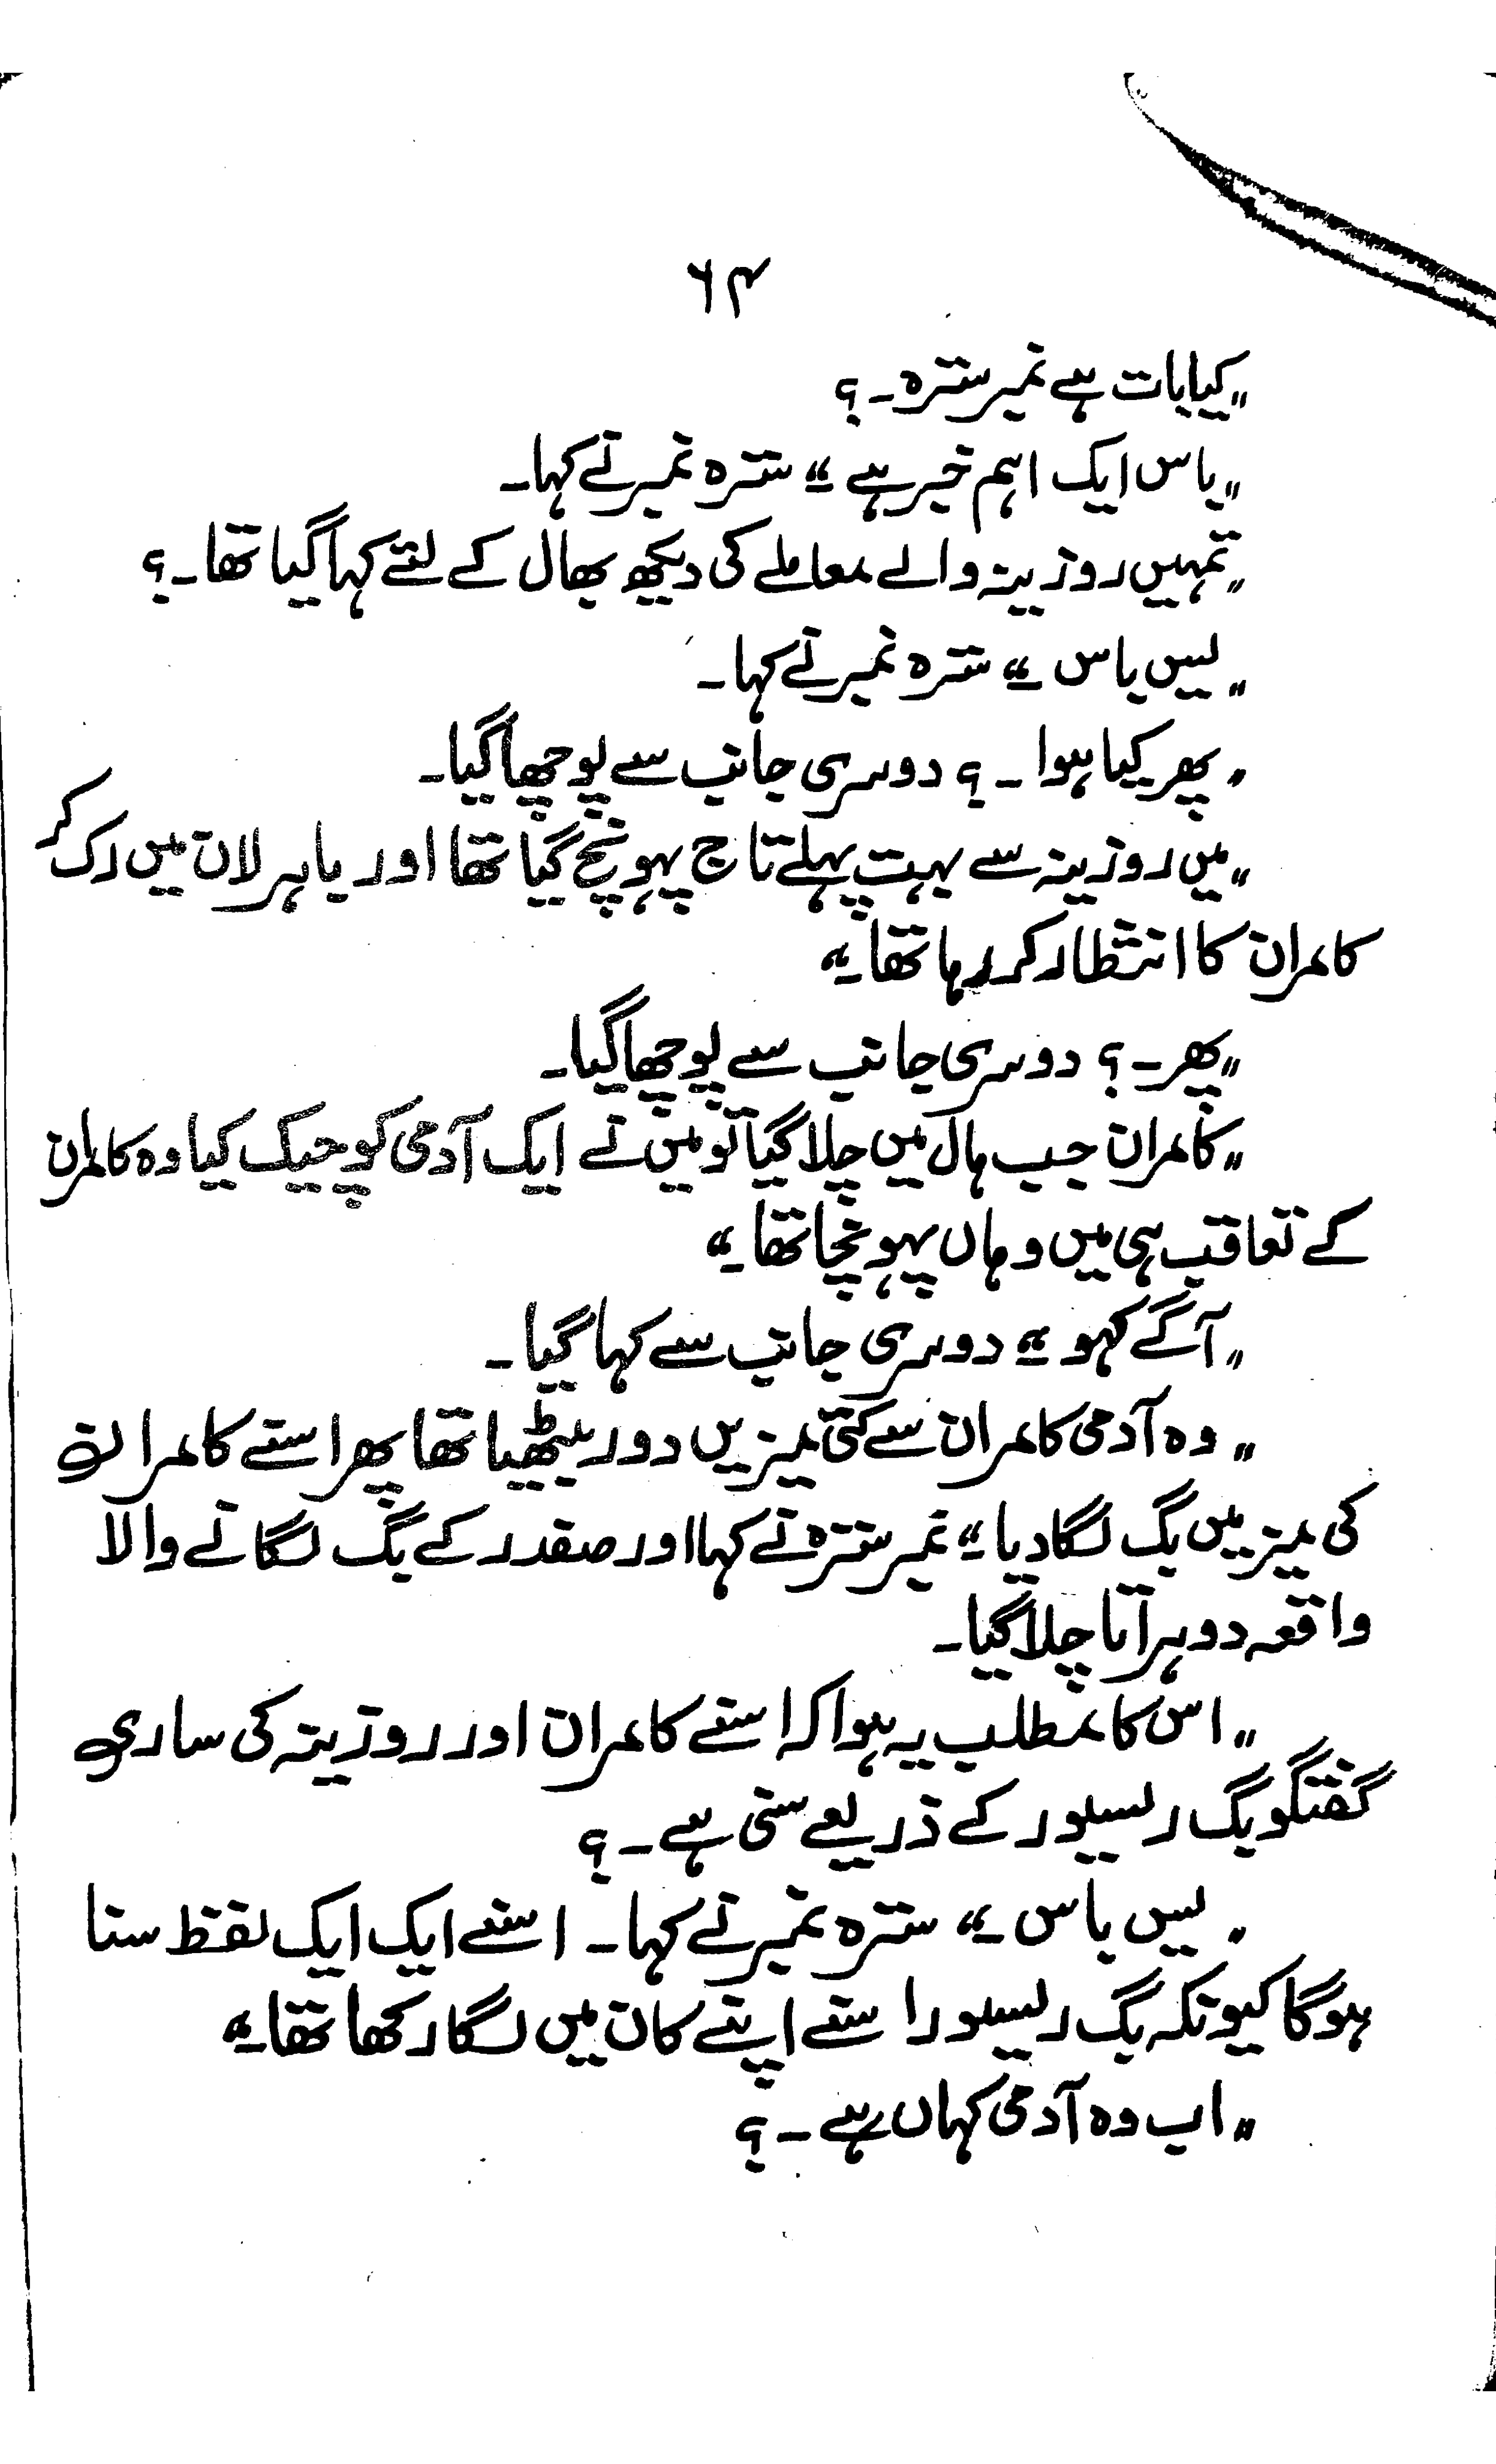 ۶۴
"کیا بات ہے نمبر سترہ۔؟
"باس ایک اہم خبر ہے۔" سترہ نمبر نے کہا۔
"تمہیں روزینہ والے معاملے کی دیکھ بھال کے لئے کہا گیا تھا۔؟
"یس باس۔" سترہ نمبر نے کہا۔
"پھر کیا ہوا۔؟ دوسری جانب سے پوچھا گیا۔
"میں روزینہ سے بہت پہلے تاج پہونچ گیا تھا اور باہر لان میں رک کر
کامران کا انتظار کر رہا تھا۔"
"پھر۔؟ دوسری جانب سے پوچھا گیا۔
"کامران جب ہال میں چلا گیا تو میں نے ایک آدمی کو چیک کیا وہ کامران
کے تعاقب ہی میں وہاں پہونچا تھا۔"
"آگے کہو۔" دوسری جانب سے کہا گیا۔
"وہ آدمی کامران سے کئی میزیں دور بیٹھا تھا پھر اسنے کامران
کی میز میں بگ لگا دیا۔" نمبر سترہ نے کہا اور صفدر کے بگ لگانے والا
واقعہ دوہراتا چلا گیا۔
"اس کا مطلب یہ ہوا کہ اسنے کامران اور روزینہ کی ساری
گفتگو بگ ریسیور کے ذریعے سنی ہے۔؟
"یس باس۔" سترہ نمبر نے کہا۔ اسنے ایک ایک لفظ سنا
ہوگا کیونکہ بگ ریسیور اسنے اپنے کان میں لگا رکھا تھا۔"
"اب وہ آدمی کہاں ہے۔؟